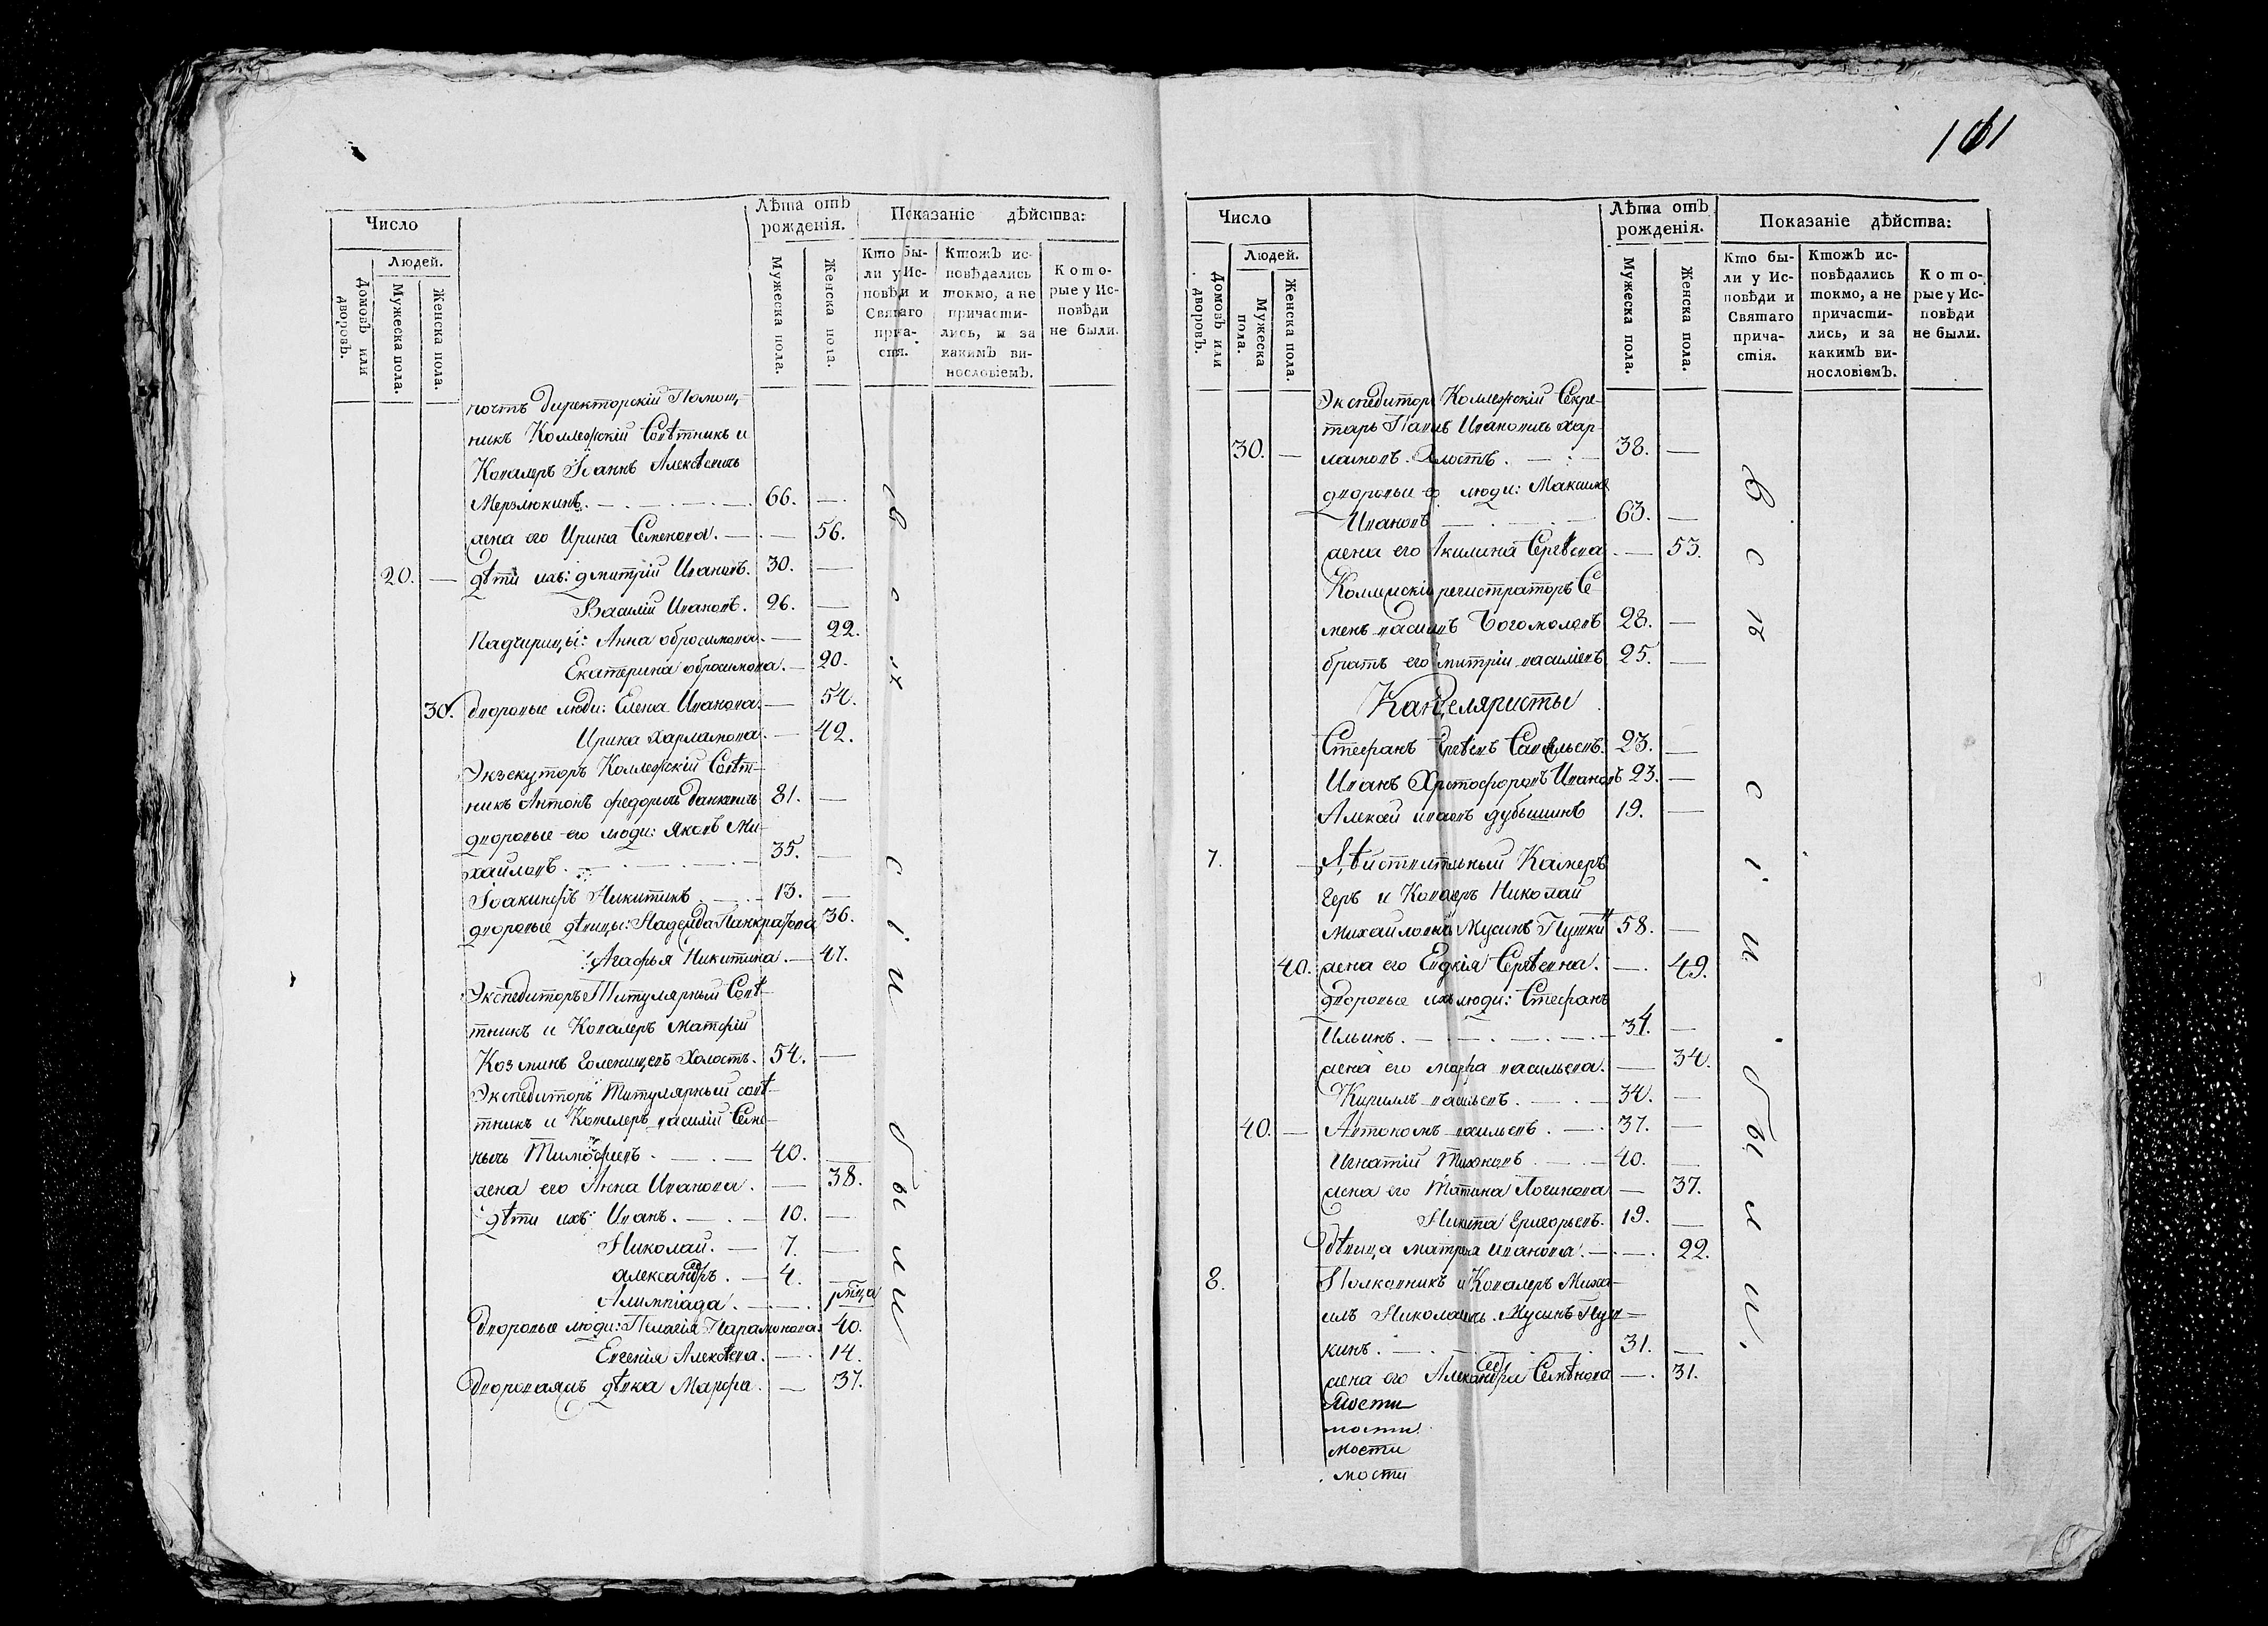 161
Число
Людей.
Домовъ или дворовъ.
Мужеска пола.
Женска пола.
Лѣта отъ рожденія.
Мужеска пола.
Женска пола.
Показаніе дѣйства:
Кто бы-
ли у Ис-
повѣди и
Святаго
прича-
стія.
Ктожъ ис-
повѣдались
токмо, а не
причасти-
лись, и за
какимъ ви-
нословіемъ.
Кото-
рые у Ис-
повѣди
не были.
почтъ директорскій Помощ-
никъ Коллежскій Совѣтникъ и
Кавалеръ Іоаннъ Алексѣевичь
Мерзлюкинъ. 66.
жена его Ирина Семенова. 56.
20. дѣти ихъ: дмитрій Ивановъ. 30.
Василій Ивановъ. 26.
Падчирицы: Анна обросимова. 22.
Екатерина обросимова. 20.
30. дворовые люди: Елена Иванова. 54.
Ирина Харламова. 42.
Экзекуторъ Коллежскій Совѣт-
никъ Антонъ федоричь 81.
дворовые его люди: Яковъ Ми-
хайловъ. 35.
Іоакинфъ Никитинъ. 13.
дворовые дѣвицы: Надежда Панкратова 36.
Агафья Никитина. 47.
Экспедиторъ Титулярный Совѣ-
тникъ и Кавалеръ Матфій
Козминъ Голенищевъ Холостъ. 54.
Экспедиторъ Титулярный совѣ-
тникъ и Кавалеръ василій Семе-
нычь Тимофиевъ. 40.
жена его Анна Иванова. 38.
дѣти ихъ: Иванъ. 10.
Николай. 7.
александръ. 4.
Алимпіада.
дворовые люди: Пелагія Парамонова. 40.
Евгенія Алексѣева. 14.
дворовая дѣвка Марфа. 37.
всѣ
сіи
были
Число
Людей.
Домовъ или дворовъ.
Мужеска пола.
Женска пола.
Лѣта отъ рожденія.
Мужеска пола.
Женска пола.
Показаніе дѣйства:
Кто бы-
ли у Ис-
повѣди и
Святаго
прича-
стія.
Ктожъ ис-
повѣдались
токмо, а не
причасти-
лись, и за
какимъ ви-
нословіемъ.
Кото-
рые у Ис-
повѣди
не были.
Экспедиторъ Коллежскій Секре-
тарь Павилъ Ивановичь Хар-
30. ламовъ. Холостъ. 38.
дворовыи его люди: Максимъ
Ивановъ 63.
жена его Акилина Сергѣева. 53.
регистраторъ Се-
менъ васильевъ Богомоловъ 28.
братъ его дмитріи василіевъ 25.
Канцеляристы
Стефанъ Савельевъ. 23.
Иванъ Христофоровъ Ивановъ 23.
Алексѣй ивановъ дубышинъ 19.
7. Дѣйствительный Камеръ
геръ и Кавалеръ Николай
Михайловичь Мусинъ Пушкинъ 58.
40. жена его Евдокія Сергѣевна. 49.
дворовые ихъ люди: Стефанъ
Ильинъ. 34.
жена его марфа васильева. 34.
Кириллъ васильевъ. 34.
40. Автономъ васильевъ. 37.
Игнатій Тихоновъ. 40.
жена его Татиана Логинова 37.
Никита Григорьевъ. 19.
дѣвица матрена иванова. 22.
8. Полковникъ и Кавалеръ Миха-
илъ Николаевичь Мусинъ Пуш=
кинъ. 31.
жена его Александра Семѣнова 31.
мости
мости
мости
мости
всѣ
сіи
были.